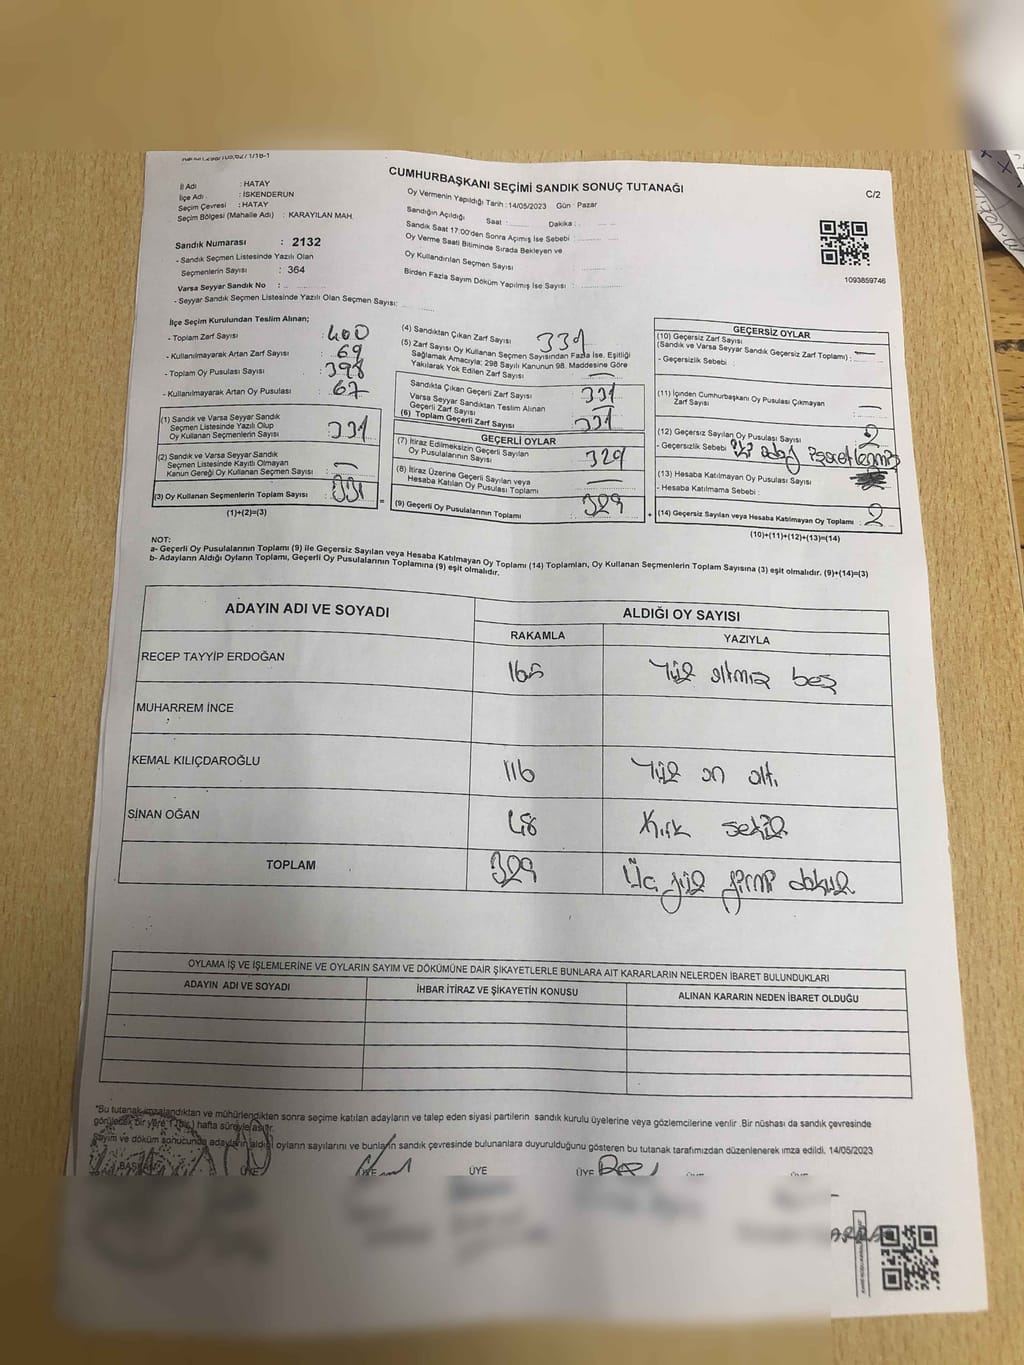 CUMHURBAŞKANI SEÇİMİ SANDIK SONUÇ TUTANAĞI
C/2
İl Adı : HATAY
İlçe Adı : İSKENDERUN
Seçim Çevresi : HATAY
Seçim Bölgesi (Mahalle Adı) : KARAYILAN MAH.
Sandık Numarası : 2132
- Sandık Seçmen Listesinde Yazılı Olan
Seçmenlerin Sayısı : 364
Varsa Seyyar Sandık No :
- Seyyar Sandık Seçmen Listesinde Yazılı Olan Seçmen Sayısı:
Oy Vermenin Yapıldığı Tarih :14/05/2023 Gün : Pazar
Sandığın Açıldığı Saat : Dakika :
Sandık Saat 17:00'den Sonra Açımış İse Sebebi :
Oy Verme Saati Bitiminde Sırada Bekleyen ve
Oy Kullandırılan Seçmen Sayısı
Birden Fazla Sayım Döküm Yapılmış İse Sayısı :
1093859746
İlçe Seçim Kurulundan Teslim Alınan;
- Toplam Zarf Sayısı : 400
- Kullanılmayarak Artan Zarf Sayısı : 69
- Toplam Oy Pusulası Sayısı : 398
- Kullanılmayarak Artan Oy Pusulası : 67
(1) Sandık ve Varsa Seyyar Sandık
Seçmen Listesinde Yazılı Olup
Oy Kullanan Seçmenlerin Sayısı : 331
(2) Sandık ve Varsa Seyyar Sandık
Seçmen Listesinde Kayıtlı Olmayan
Kanun Gereği Oy Kullanan Seçmen Sayısı : —
(3) Oy Kullanan Seçmenlerin Toplam Sayısı : 331
(1)+(2)=(3)
(4) Sandıktan Çıkan Zarf Sayısı : 331
(5) Zarf Sayısı Oy Kullanan Seçmen Sayısından Fazla İse, Eşitliği
Sağlamak Amacıyla; 298 Sayılı Kanunun 98. Maddesine Göre
Yakılarak Yok Edilen Zarf Sayısı : —
Sandıkta Çıkan Geçerli Zarf Sayısı : 331
Varsa Seyyar Sandıktan Teslim Alınan
Geçerli Zarf Sayısı : —
(6) Toplam Geçerli Zarf Sayısı : 331
GEÇERLİ OYLAR
(7) İtiraz Edilmeksizin Geçerli Sayılan
Oy Pusulalarının Sayısı : 329
(8) İtiraz Üzerine Geçerli Sayılan veya
Hesaba Katılan Oy Pusulası Toplamı : —
(9) Geçerli Oy Pusulalarının Toplamı : 329
GEÇERSİZ OYLAR
(10) Geçersiz Zarf Sayısı
(Sandık ve Varsa Seyyar Sandık Geçersiz Zarf Toplamı) : —
- Geçersizlik Sebebi :
(11) İçinden Cumhurbaşkanı Oy Pusulası Çıkmayan
Zarf Sayısı : —
(12) Geçersiz Sayılan Oy Pusulası Sayısı : 2
- Geçersizlik Sebebi : iki aday işaretlenmiş
(13) Hesaba Katılmayan Oy Pusulası Sayısı
- Hesaba Katılmama Sebebi :
(14) Geçersiz Sayılan veya Hesaba Katılmayan Oy Toplamı : 2
(10)+(11)+(12)+(13)=(14)
NOT:
a- Geçerli Oy Pusulalarının Toplamı (9) ile Geçersiz Sayılan veya Hesaba Katılmayan Oy Toplamı (14) Toplamları, Oy Kullanan Seçmenlerin Toplam Sayısına (3) eşit olmalıdır. (9)+(14)=(3)
b- Adayların Aldığı Oyların Toplamı, Geçerli Oy Pusulalarının Toplamına (9) eşit olmalıdır.
ADAYIN ADI VE SOYADI ALDIĞI OY SAYISI
RAKAMLA YAZIYLA
RECEP TAYYİP ERDOĞAN 165 Yüz altmış beş
MUHARREM İNCE
KEMAL KILIÇDAROĞLU 116 Yüz on altı
SİNAN OĞAN 48 Kırk sekiz
TOPLAM 329 Üç yüz yirmi dokuz
OYLAMA İŞ VE İŞLEMLERİNE VE OYLARIN SAYIM VE DÖKÜMÜNE DAİR ŞİKAYETLERLE BUNLARA AİT KARARLARIN NELERDEN İBARET BULUNDUKLARI
ADAYIN ADI VE SOYADI İHBAR İTİRAZ VE ŞİKAYETİN KONUSU ALINAN KARARIN NEDEN İBARET OLDUĞU
"Bu tutanak imzalandıktan ve mühürlendikten sonra seçime katılan adayların ve talep eden siyasi partilerin sandık kurulu üyelerine veya gözlemcilerine verilir .Bir nüshası da sandık çevresinde
görülecek bir yere 1 (bir) hafta süreyle asılır.
Sayım ve döküm sonucunda adayların aldığı oyların sayılarını ve bunların sandık çevresinde bulunanlara duyurulduğunu gösteren bu tutanak tarafımızdan düzenlenerek imza edildi. 14/05/2023
BAŞKAN ÜYE ÜYE ÜYE ÜYE